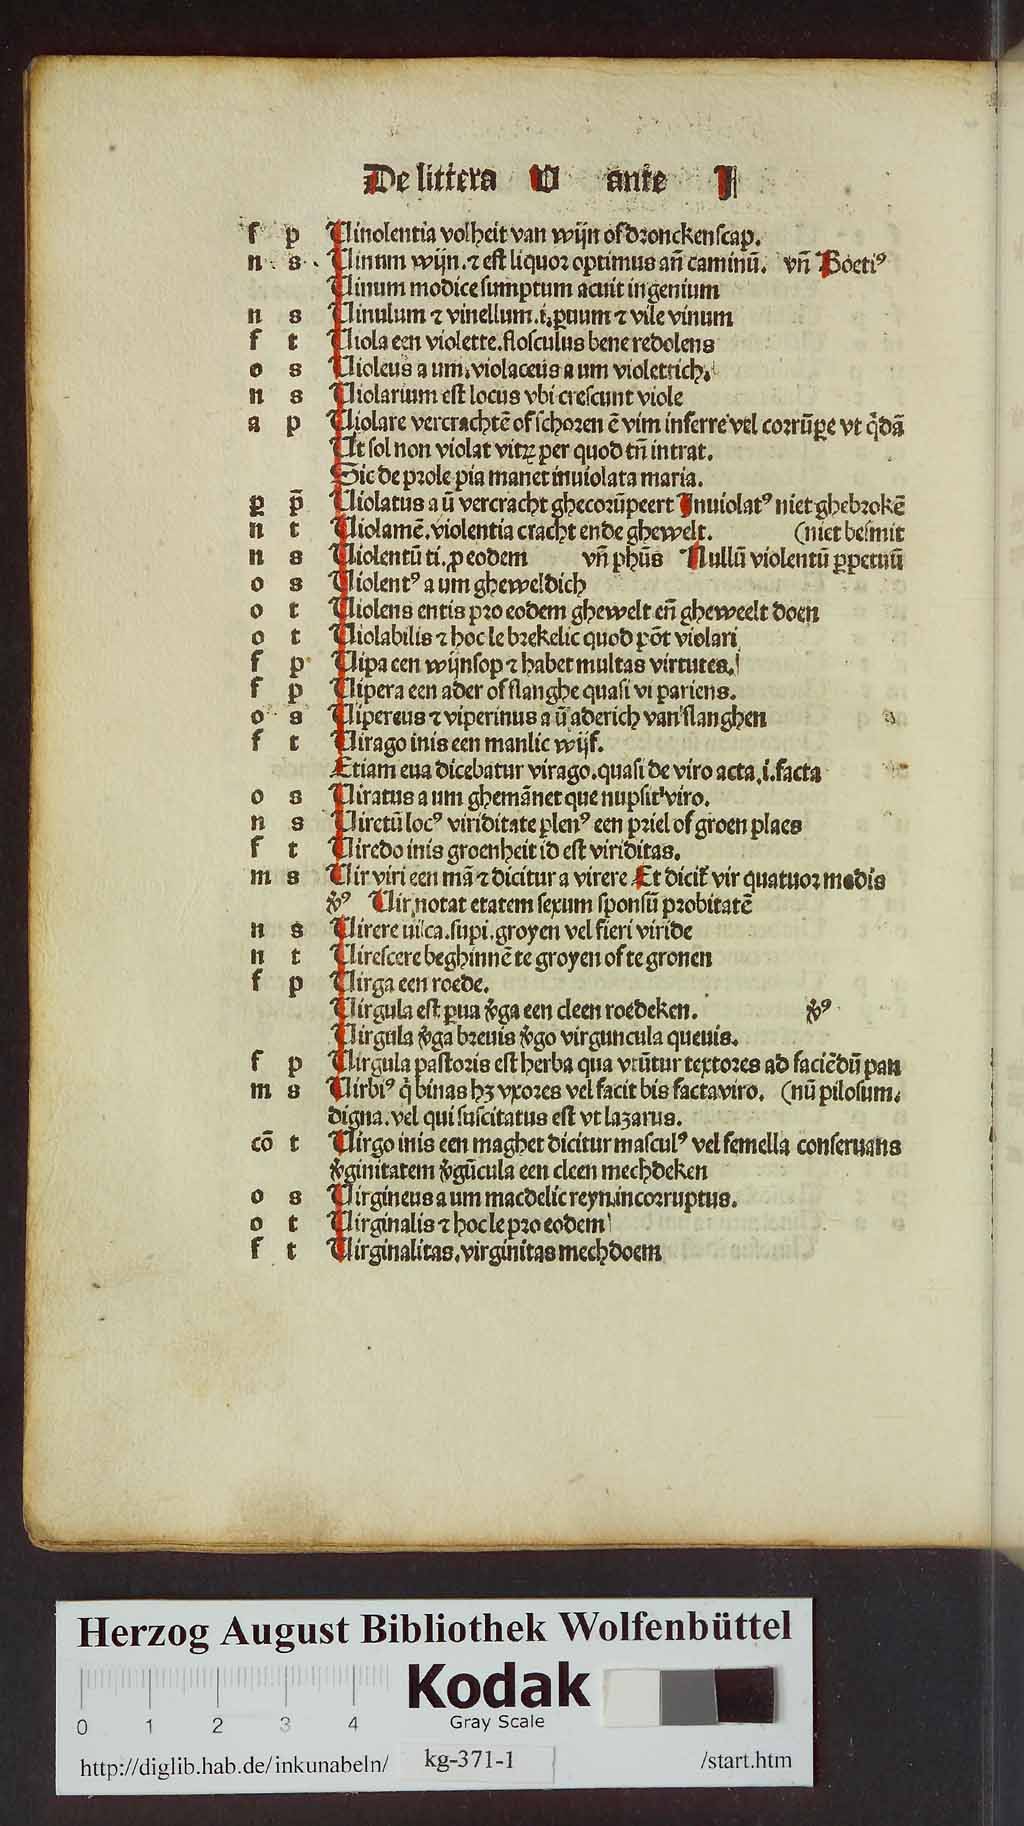 De littera V ante I
f p Vinolentia volheit van wijn of dronckenscap.
n s Vinum wijn. ⁊ est liquor optimus an̄ caminū. vn̄ Boeti⁹
Vinum modice sumptum acuit ingenium
n s Vinulum ⁊ vinellum .i. ꝑuum ⁊ vile vinum
f t Viola een violette. flosculus bene redolens
o s Violeus a um. violaceus a um violettich.
n s Violarium est locus vbi crescunt viole
a p Violare vercrachtē of schoren ē vim inferre vel corrūꝑe vt q̄dā
Ut sol non violat vitrꝫ per quod tn̄ intrat.
Sic de prole pia manet inuiolata maria.
ꝑ p̄ Violatus a ū vercracht ghecorūpeert Inuiolat⁹ niet ghebrokē
n t Violamē. violentia cracht ende ghewelt. (niet besmit
n s Violentū ti. ꝓ eodem vn̄ ph̄us Nullū violentū ꝑpetuū
o s Violent⁹ a um gheweldich
o t Violens entis pro eodem ghewelt en̄ gheweelt doen
o t Violabilis ⁊ hoc le brekelic quod pōt violari
f p Vipa een wijnsop ⁊ habet multas virtutes.
f p Vipera een ader of slanghe quasi vi pariens.
o s Vipereus ⁊ viperinus a ū aderich van slanghen
f t Virago inis een manlic wijf.
Etiam eua dicebatur virago. quasi de viro acta .i. facta
o s Viratus a um ghemānet que nupsit viro.
n s Viretū loc⁹ viriditate plen⁹ een priel of groen plaes
f t Viredo inis groenheit id est viriditas.
m s Vir viri een mā ⁊ dicitur a virere Et dicit̄ vir quatuor modis
v̄⁹ Vir notat etatem sexum sponsū probitatē
n s Virere ui. ca. supi. groyen vel fieri viride
n t Virescere beghinnē te groyen of te gronen
f p Virga een roede.
Virgula est ꝑua v̄ga een cleen roedeken. v̄⁹
Virgula v̄ga breuis v̄go virguncula queuis.
f p Virgula pastoris est herba qua vtūtur textores ad faciēdū pan
m s Virbi⁹ q̄ binas hꝫ vxores vel facit bis facta viro. (nū pilosum.
digna. vel qui suscitatus est vt lazarus.
cō t Virgo inis een maghet dicitur mascul⁹ vel femella conseruans
v̄ginitatem v̄gūcula een cleen mechdeken
o s Virgineus a um macdelic reyn. incorruptus.
o t Virginalis ⁊ hoc le pro eodem
f t Virginalitas. virginitas mechdoem
Herzog August Bibliothek Wolfenbüttel
Kodak
Gray Scale
0 1 2 3 4
http://diglib.hab.de/inkunabeln/ kg-371-1 /start.htm